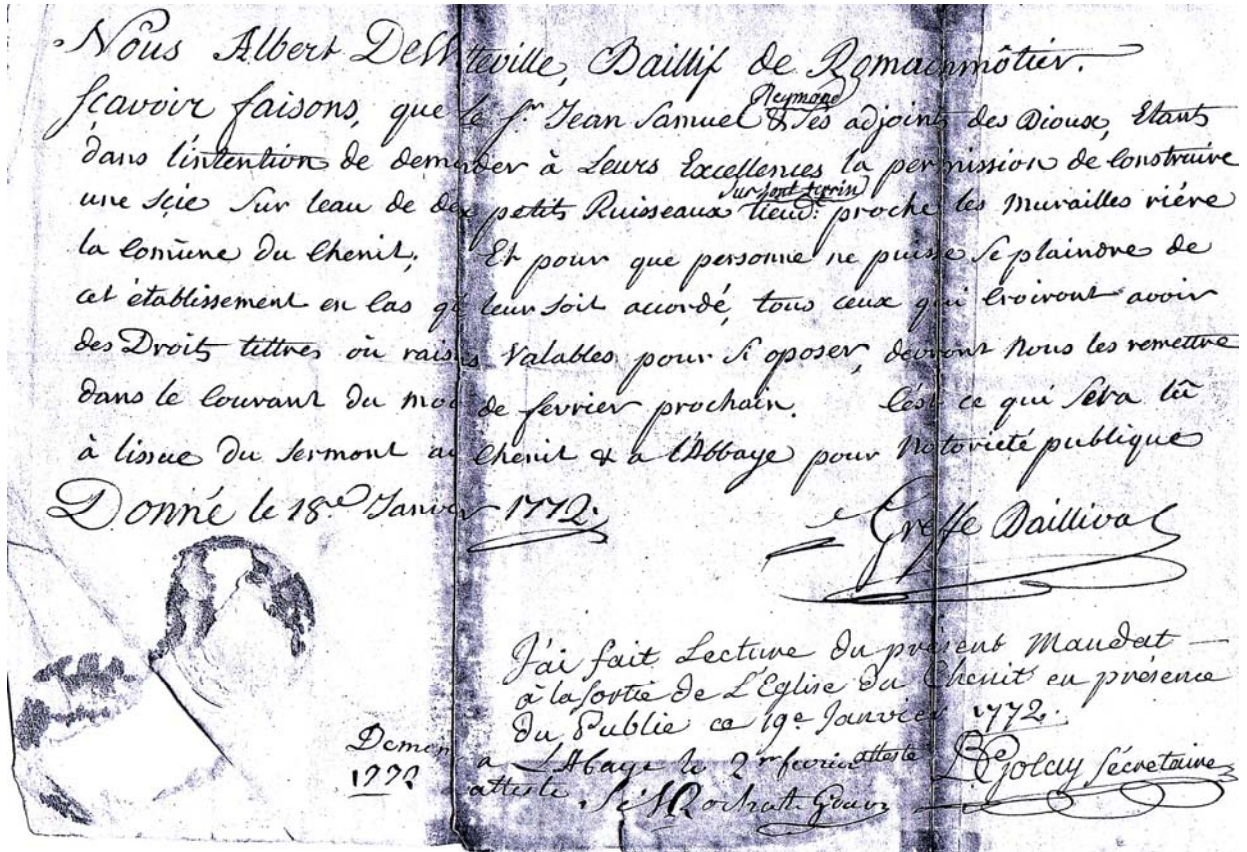 Nous Albert DeWatteville, Baillif de Romainmôtier.
Sçavoir faisons, que le Sr. Jean Samuel Reymond & ses adjoints des Bioux, Etants
dans l'intention de demander à Leurs Excellences la permission de Construire
une Scie sur leau de deux petits Ruisseaux sur font turin lieud: proche les murailles riére
la Comūne du Chenit; Et pour que personne ne puisse se plaindre de
cet établissement en Cas qu leur soit accordé, tous ceux qui Croiront avoir
des Droits tittres où raisons Valables pour si oposer, devront Nous les remettre
dans le Courant du mois de fevrier prochain. C'est ce qui Séra lû
à lissue du Sermont au Chenit & a l'Abbaye pour Notorieté publique
Donné le 18.e Janvier 1772.
Greffe Baillival
J'ai fait Lecture du présent Mandat
à la Sortie de L'Eglise du Chenit en présence
du Public ce 19e Janvier 1772.
atteste Golay Sécretaire
Demen a L'Abaye le 2me fevrier
1772 atteste Rochat Gouvr